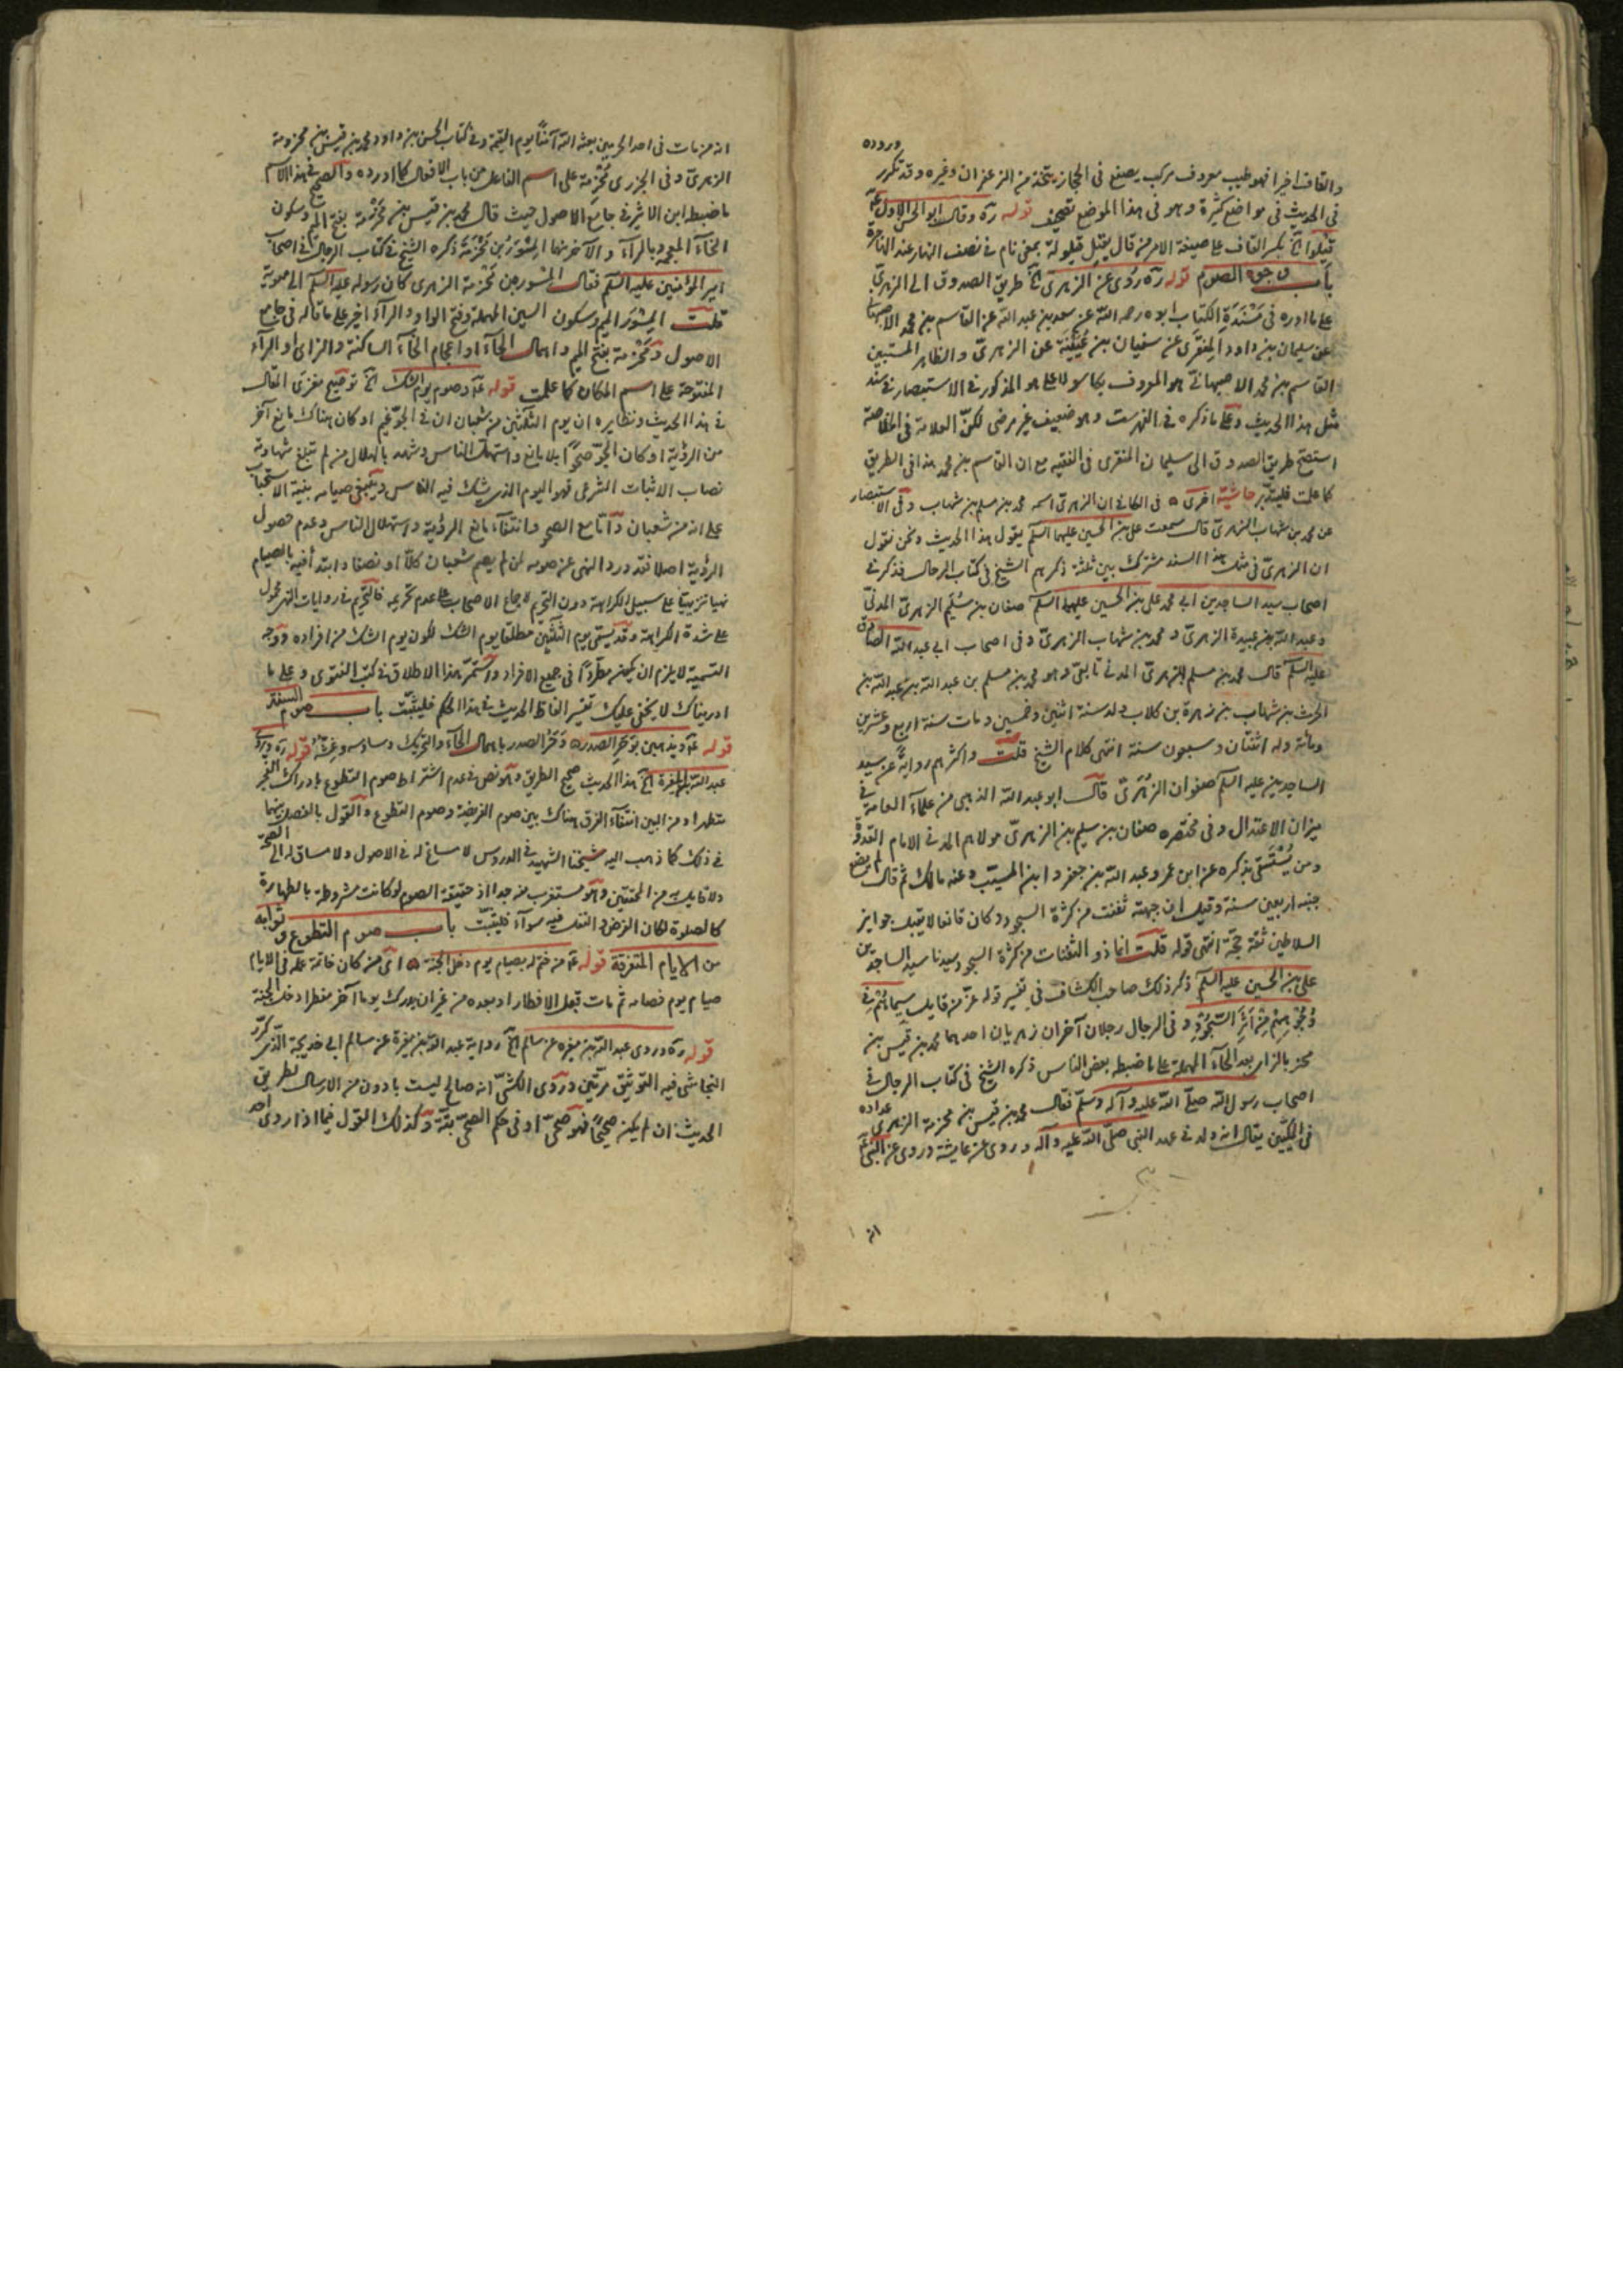 وروده
والقاف اخيرا فهو طيب معروف مركب يصبغ في الحجاز يتخذ من الزعفران وغيره وقد تكرر
في الحديث في مواضع كثيرة وهو في هذا الموضع تصحيف قوله ره وقال ابو الحسن الاول عم
قيلوا الخ بكسر القاف على صيغة الامر من قال يقيل قيلولة بمعنى نام في نصف النهار عند
باب وجوه الصوم قوله ره روى عن الزهري الخ طريق الصدوق الى الزهري
على ما اورده في مسندة الكتاب ابوه رحمه الله عن سعد بن عبد الله عن القاسم بن محمد الاصبهاني
عن سليمان بن داود المنقري عن سفيان بن عيينة عن الزهري والظاهر المستبين
القاسم بن محمد الاصبهاني هو المعروف بكاسولا على هو المذكور في الاستبصار في سند
مثل هذا الحديث وعلى ما ذكره في الفهرست وهو ضعيف غير مرضي لكن العلامة في الخلاصة
استصح طريق الصدوق الى سليمان المنقري في الفقيه مع ان القاسم بن محمد هذا في الطريق
كما علمت فليتدبر حاشية اخرى ه في الكافي ان الزهري اسمه محمد بن مسلم بن شهاب وفي الاستبصار
عن محمد بن شهاب الزهري قال سمعت علي بن الحسين عليهما السلم يقول هذا الحديث ونحن نقول
ان الزهري في مثل هذا السند مشترك بين ثلثة ذكرهم الشيخ في كتاب الرجال فذكر في
اصحاب سيد الساجدين ابي محمد علي بن الحسين عليهما السلم صفان بن سليم الزهري المدني
وعبد الله بن عبيدة الزهري ومحمد بن شهاب الزهري وفي اصحاب ابي عبد الله الصادق
عليه السلم قال محمد بن مسلم الزهري المدني تابعي وهو محمد بن مسلم بن عبد الله بن عبد الله بن
الحرث بن شهاب بن زهرة بن كلاب ولد سنة اثنين وخمسين ومات سنة اربع وعشرين
ومائة وله اثنتان وسبعون سنة انتهى كلام الشيخ قلت واكثرهم رواية عن سيد
الساجدين عليه السلم صفوان الزهري قال ابو عبد الله الذهبي من علماء العامة في
ميزان الاعتدال وفي مختصره صفان بن سليم بن الزهري مولاهم المدني الامام القدوة
ومن يستسقى بذكره عن ابن عمر وعبد الله بن جعفر وابن المسيب وعنه مالك ثم قال لم يضع
جنبه اربعين سنة وقيل ان جبهته ثفنت من كثرة السجود وكان قانعا لا يقبل جوايز
السلاطين ثقة حجة انتهى قوله قلت انما ذو الثفنات من كثرة السجود سيدنا سيد الساجدين
علي بن الحسين عليه السلم ذكر ذلك صاحب الكشاف في تفسير قوله عز من قايل سيماهم في
وجوههم من اثر السجود وفي الرجال رجلان آخران زهريان احدهما محمد بن قيس بن
محز بالزاي بعد الحاء المهملة على ما ضبطه بعض الناس ذكره الشيخ في كتاب الرجال في
اصحاب رسول الله صلى الله عليه وآله وسلم فقال محمد بن قيس بن مخرمة الزهري عداده
في المكيين يقال انه ولد في عهد النبي صلى الله عليه وآله وروى عن عايشة وروى عن النبي
انه من مات في احد الحرمين بعثه الله آمنا يوم القيمة وفي كتاب الحسن بن داود محمد بن قيس بن محزومة
الزهري وفي الجزري مخرمة على اسم الفاعل من باب الافعال كما اورده والصحيح في هذا الاسم
ما ضبطه ابن الاثير في جامع الاصول حيث قال محمد بن قيس بن مخرمة بفتح الميم وسكون
الخاء المعجمة بالراء والآخر منهما المسور بن مخرمة ذكره الشيخ في كتاب الرجال في اصحاب
امير المؤمنين عليه السلم فقال المسور بن مخرمة الزهري كان رسوله عليه السلم الى معوية
قلت المسور الميم وسكون السين المهملة وفتح الواو والراء اخيرا على ما قاله في جامع
الاصول ومخرمة بفتح الميم واهمال الحاء او اعجام الخاء الساكنة والزاي او الراء
المفتوحة على اسم المكان كما علمت قوله عم وصوم يوم الشك الخ توضيح مغزى المقال
في هذا الحديث ونظايره ان يوم الثلثين من شعبان ان في الجو غيم او كان هناك مانع آخر
من الرؤية او كان الجو صحوا بلا مانع واستهل الناس وشهد بالهلال من لم تبلغ شهادته
نصاب الاثبات الشرعي فهو اليوم الذي يشك فيه الناس وينبغي صيامه بنية الاستحباب
على انه من شعبان واما مع الصحو وانتفاء مانع الرؤية واستهلال الناس وعدم حصول
الرؤية اصلا فقد ورد النهي عن صومه لمن لم يصم شعبان كلا او نصفا وابتدأ فيه بالصيام
نهيا تنزيهيا على سبيل الكراهة دون التحريم لاجماع الاصحاب على عدم تحريمه فالتحريم في روايات النهي محمول
على شدة الكراهة وقد يسمى يوم الثلثين مطلقا يوم الشك لكون يوم الشك من افراده ووجه
التسمية لا يلزم ان يكون مطردا في جميع الافراد واستمر هذا الاطلاق في كتب الفتوى وعلى ما
ادريناك لا يخفى عليك تفسير الفاظ الحديث في هذا الحكم فليتثبت باب صوم السنة
قوله عم ويذهبن بوحر الصدر ه وحر الصدر باهمال الحاء والتحريك وساوسه وغشه قوله ره وروى
عبد الله بن المغيرة الخ هذا الحديث صحيح الطريق وهو نص في عدم اشتراط صوم التطوع بادراك الفجر
متطهرا ومن البين انتفاء الفرق هناك بين صوم الفريضة وصوم التطوع والقول بالفصل بينهما
في ذلك كما ذهب اليه شيخنا الشهيد في الدروس لا مساغ له في الاصول ولا مساق له الى الصحة
ولا قايل به من المحققين وهو مستغرب منه جدا اذ حقيقة الصوم لو كانت مشروطة بالطهارة
كالصلوة لكان الفرض والنفل فيه سواء فليتثبت باب صوم التطوع وثوابه
من الايام المتفرقة قوله عم من ختم له بصيام يوم دخل الجنة ه اي من كان خاتمة عمله في الايام
صيام يوم فصامه ثم مات قبل الافطار او بعده من غير ان يدرك يوما آخر مفطرا دخل الجنة
قوله ره وروى عبد الله بن مغيرة عن سالم الخ رواية عبد الله بن مغيرة عن سالم ابي خديجة الذي كرر
النجاشي فيه التوثيق مرتين وروى الكشي انه صالح ليست بادون من الارسال لطريق
الحديث ان لم يكن صحيحا فهو صحي او في حكم الصحي بتة وكذلك القول فيما اذا روى احد